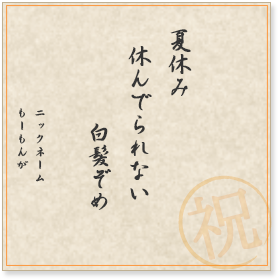 夏休み
休んでられない
白髪ぞめ
ニックネーム
もーもんが
祝